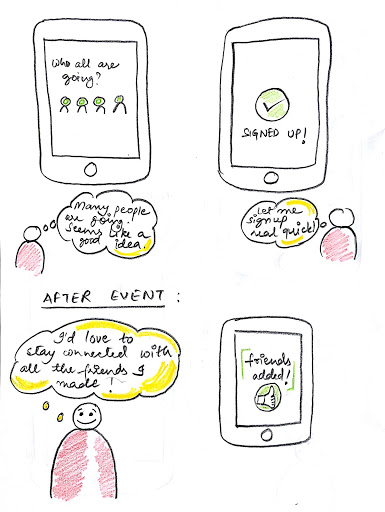 Who all are
going?
SIGNED UP!
Many people
are going!
Seems like a
good idea.
Let me
signup
real quick!
AFTER EVENT :
I'd love to
stay connected with
all the friends I
made!
friends
added!